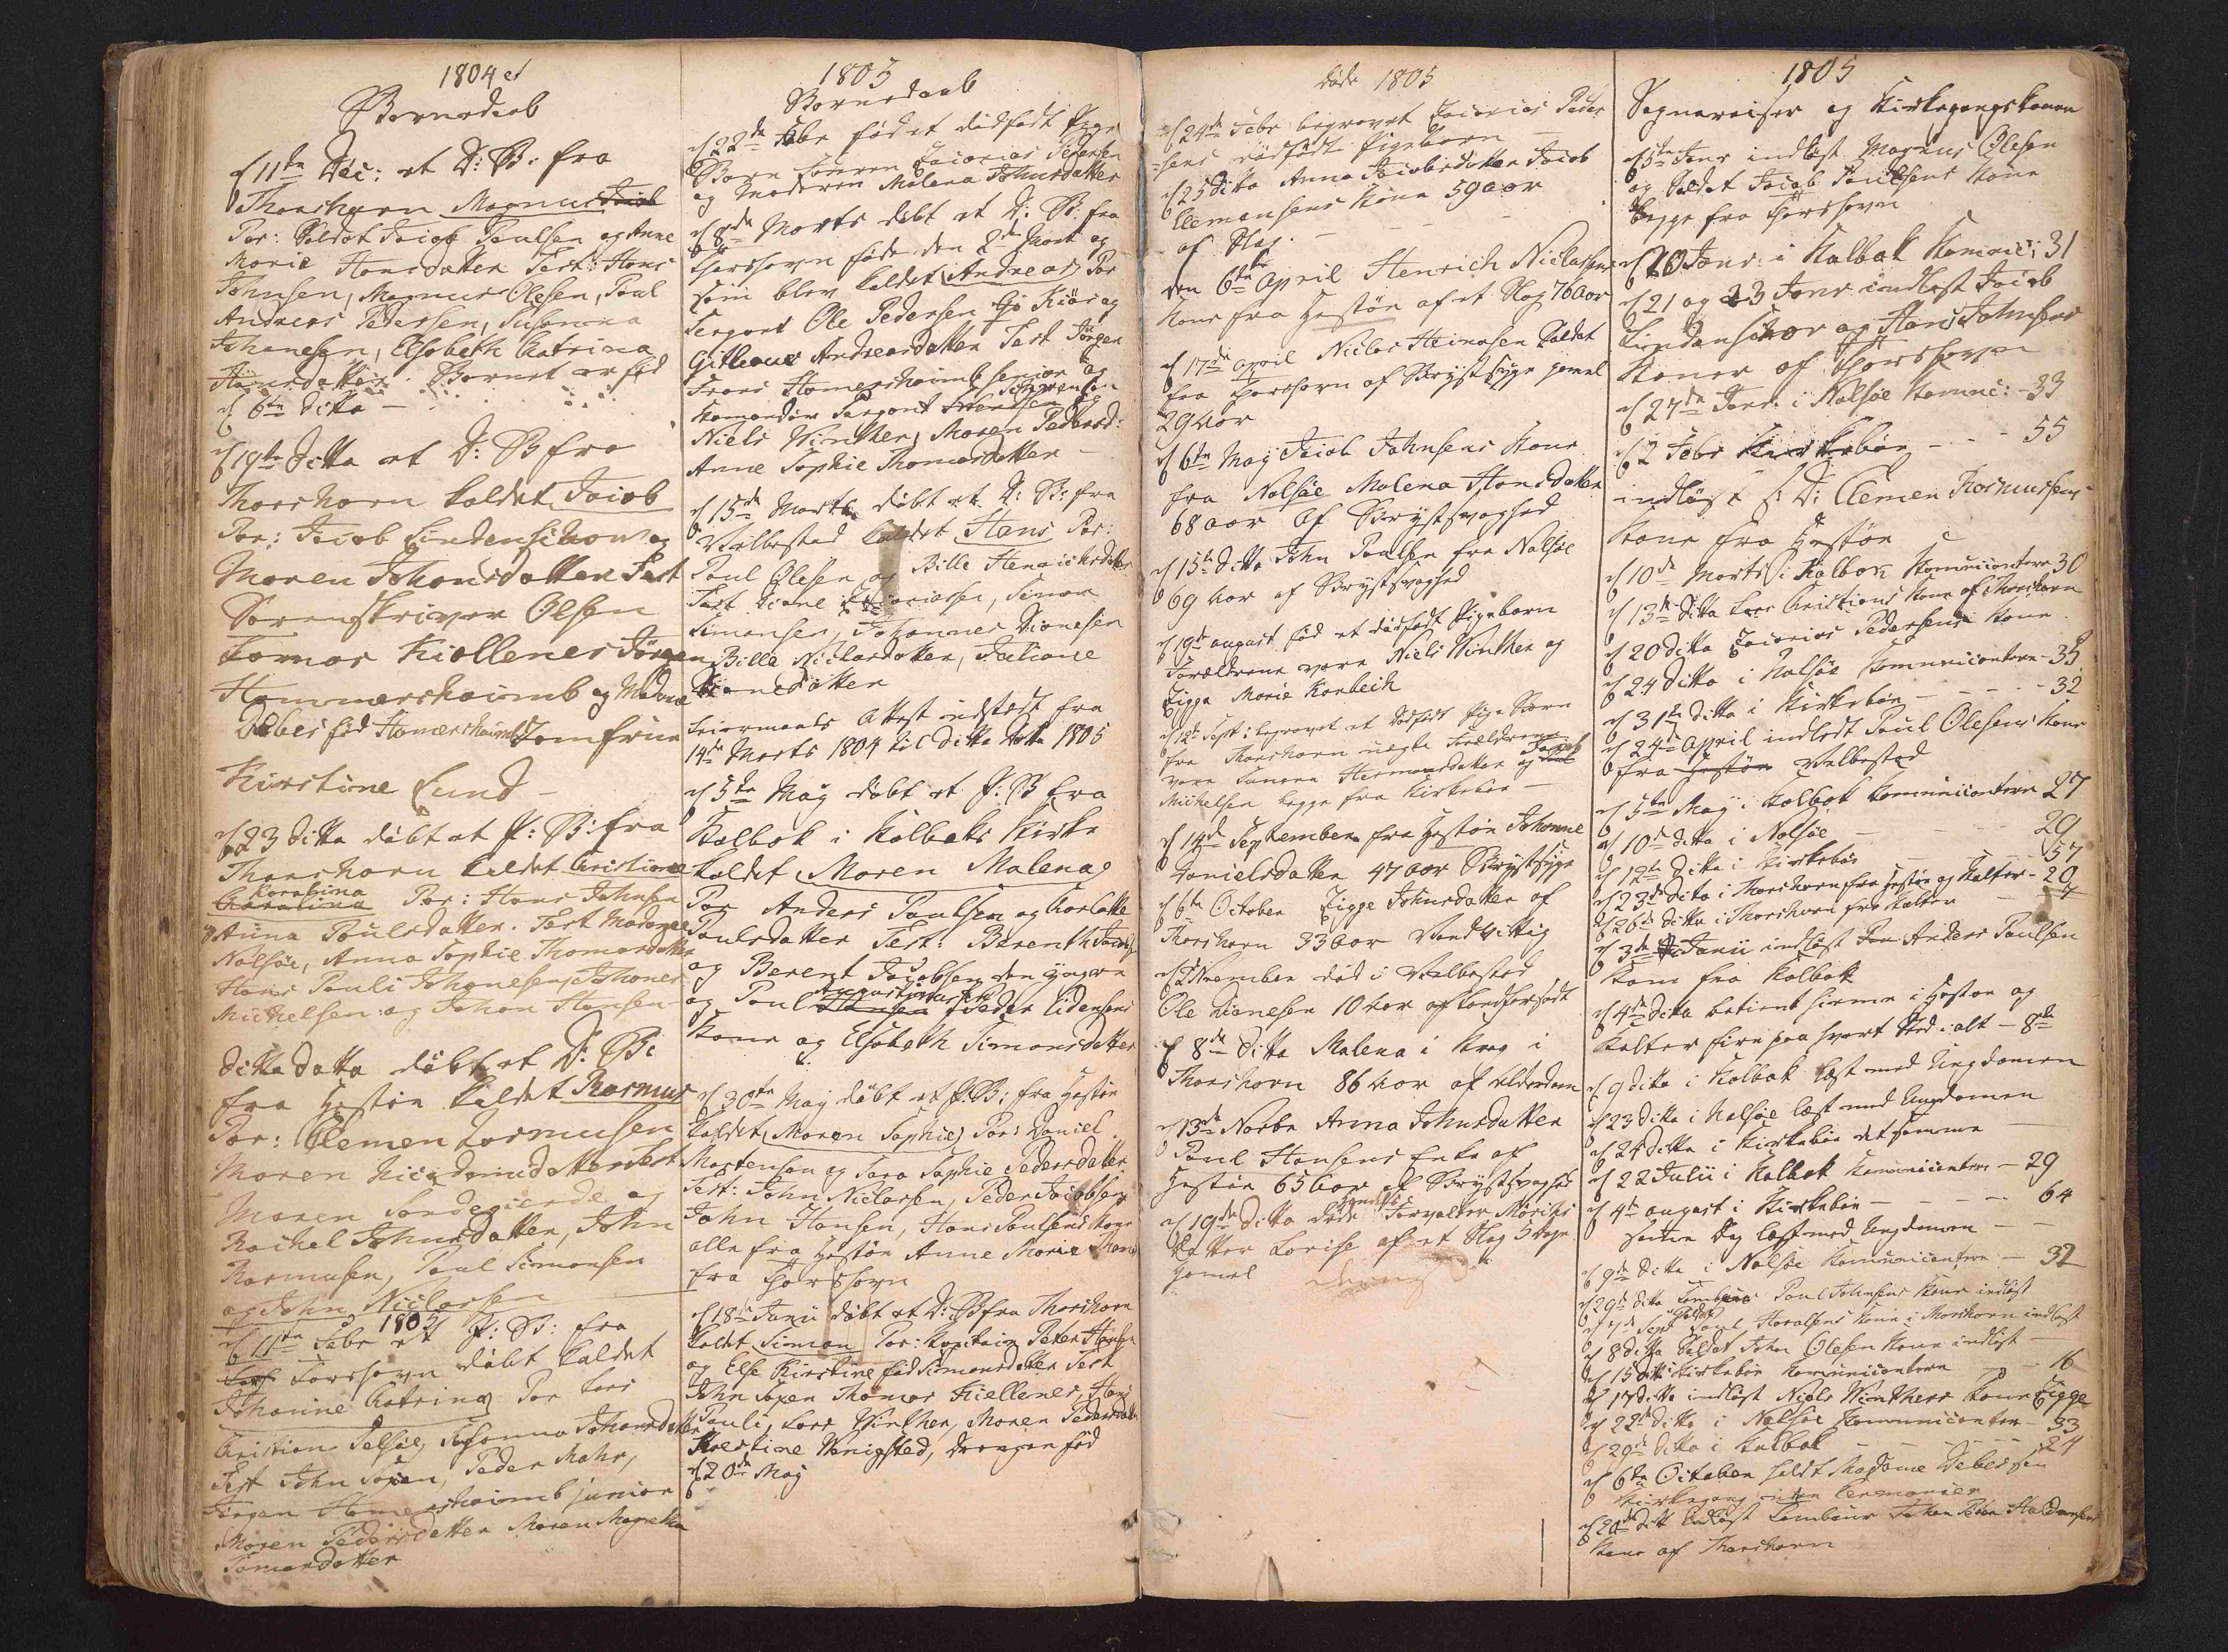 1804 et
Børnedaab
d 11te Dec: et D: B: fra
Thorshavn Magnus Jacob
Par: Soldat Jacob Poulsen og Anne
Marie Hansdatter Test: Hans
Johnsen, Magnus Olesen, Poul
Andreas Pedersen, Susanna
Johanesen, Elsebeth Catrina
Hansdatter. Barnet er fød
d 6te ditto
d 19te ditto et D: B fra
Thorshavn kaldet Jacob
Par: Jacob Lindenskou og
Maren Johansdatter Test
Sorenskriver Olsen
Tomas Kiellenes Jørgen
Hammershaimb og Madame
Debes fød Hamershaimb Jomfrue
Kirstine Lund
d 23 ditto døbt et P: B: fra
Thorshavn kaldet Cristiane
Karolina
Par: Hans Johnsen
Anna Poulsdatter. Test Madame
Nolsøe, Anna Sophie Thomasdatter
Hans Pauli Johanesen, Johanes
Michelsen og Johan Hansen
Ditto dato døbt et D: B:
fra Hestøe kaldet Rasmus
Par: Clemen Rasmusen
Maren Test
Maren Sondegierde og
Rachel Johnsdatter, John
Rasmusen, Poul Simonsen
og John Niclassen
1805
d 11te Febr et P: B: fra
Torshavn døbt kaldet
Johanne Catrina Par Lars
Cristian Susanna Johansdatter
Test John Peder Mahr,
Jørgen Hamershaimb junior
Maren Pedersdatter Maren Magretha
Tomasdatter
1805
Børnedaab
d 22de Febr fød et dødfødt Pige
Barn Faderen Zacarias Pedersen
og Moderen Malena Johnsdatter
d 8de Marts døbt et D: B: fra
Thorshavn føde den 2de Mart og
som blev kaldet Andreas Par
Sergant Ole Pedersen og
Andreasdatter Test Jørgen
Frans Hamershaimb senior og
Sørensen
Komandør Sergant og
Niels Winther, Maren Pedersd:
Anne Sophie Thomasdatter
d 15de Marts døbt et D: B: fra
Velbestad kaldet Hans Par:
Poul Olesen og Bille Henrichsdatter
Test Diane Simon
Simonsen, Johannes Dianesen
Bille Niclasdatter,
Dianesdatter
Leiermaals Attest indstedt fra
14de Marts 1804 til ditto dato 1805
d 5te May døbt et P: B fra
Kolbak i Kolbaks Kirke
kaldet Maren Malena
Par Anders Poulsen og Carlotte
Poulsdatter Test: Berenth Jacobsen
og Berent Jacobsen den yngere
og Poul
Kone og Elsebeth Simonsdatter
d 30te May døbt et P: B: fra Hestøe
kaldet Maren Sophie Par: Daniel
Mortensen og Sara Sophie Pedersdatter
Test: John Niclasen, Peder Jacobsen
John Hansen, Hans Poulsens Kone
alle fra Hestøe Anne Marie
fra Thorshavn
d 18de Juni døbt et D: B fra Thorshavn
kaldt Simon Par: Kapitain Peter Hansen
og Else Kirstine fød Simonsdatter Test
John Thomas Kiellenes, Hans
Pauli, Lars Winther, Maren Pedersdatter
Kirstine Wenigsted, Drengen fød
d 20de May
Døde 1805
d 24de Febr begravet Zacarias Peder-
sens dødfødte Pigebarn
d 25 ditto Anna Jacobsdatter Jacob
Clemensens Kone 59 aar
af Slag
den 6te April Henrich Niclasens
Kone fra Hestøe af et Slag 76 aar
d 17de April Niclas Heinesen kaldet
fra Thorshavn af Brystsyge gamel
29 aar
d 6te May Jacob Johnsens Kone
fra Nolsøe Malena Hansdatter
68 aar af Brystsvaghed
d 15te ditto John Poulsen fra Nolsøe
69 aar af Brystsvaghed
d 19de august fød et dødfødt Pigebarn
Forældrene vare Niels Winther og
Zigga Marie
d 12te Sept: begravet et dødfødt Pige Barn
fra Thorshavn uegte Forældrene
vare Sunneva Hermansdatter og Jacob
Michelsen begge fra Kirkebøe
d 14de September fra Hestøe Johanne
Danielsdatter 47 aar Brystsyge
d 6te October Zigge Johnsdatter af
Thorshavn 33 aar Vandvittig
d 2 November død i Velbestad
Ole Dianesen 10 aar af
d 8de ditto Malena i Krag i
Thorshavn 86 aar af alderdom
d 13de Novbr Anna Johnsdatter
Poul Hansens Enke af
Hestøe 65 aar af Brystsvaghed
d 19de ditto døde Forvalter Mörchs
Datter Lovise af et Slag 5 Dage
gamel
1805
Sognereiser og Kirkegangskoner
d 5te Janr indløst Magnus Olesen
og Soldat Jacob Poulsens Kone
begge fra Thorshavn
d 20 Janr: i Kalbak Komuni: 31
d 21 og 23 Janr indløst Jacob
Lindenskov og Hans Johnsens
Koner af Thorshavn
d 27de Janr. i Nolsøe Komuni: - 33
d 2 Febr Kirkebøe - - - 55
indløst s: D: Clemen Rasmusens
Kone fra Hestøe
d 10de Marts i Kalbak Komunicantere 30
d 13de ditto Lars Cristians Kone af Thorshavn
d 20 ditto Zacarias Pedersens Kone
d 24 ditto i Nolsøe Komunicantere - 35
d 31te ditto i Kirkebøe - - - 32
d 24de April indledt Poul Olesens Kone
fra Hestøe Velbestad
d 5te May i Kolbak Komunicantere 27
d 10de ditto i Nolsøe - - 29
d 12te ditto i Kirkebøe - - 57
d 23de ditto i Thorshavn fra Hestøe og Kolter - 20
d 26de ditto i Thorshavn fra Kolter - 7
d 3de Junii indløst Anders Poulsen
Kone fra Kolbak
d 4de ditto betient i Hestøe og
Kolter fire paa hvert Sted i alt - 8te
d 9 ditto i Kolbak læst med Ungdomen
d 23 ditto i Nolsøe læst med Ungdomen
d 24 ditto i Kirkebøe det samme
d 22 Julii i Kolbak Komunicantere - 29
d 4de august i Kirkebøe - - - 64
samme Dag læst med Ungdomen
d 9de ditto i Nolsøe Komunicantere - 32
d 29de ditto Poul Johnsens Kone indløst
d 7de Sept Soldat Poul Haralsens Kone i Thorshavn indløst
d 8 ditto Soldat John Olesen Kone indløst
d 15 ditto i Kirkebøe Komunicantere - - 16
d 17 ditto indløst Niels Winthers Kone Zigge
d 22de ditto i Nolsøe Komunicanter - 33
d 29de ditto i Kalbak - - - 24
d 6te October holdt Madame Debes sin
Kirkegang uden Ceremonier
d 20de ditto indløst Tambour Johan Peter Haldansens
Kone af Thorshavn